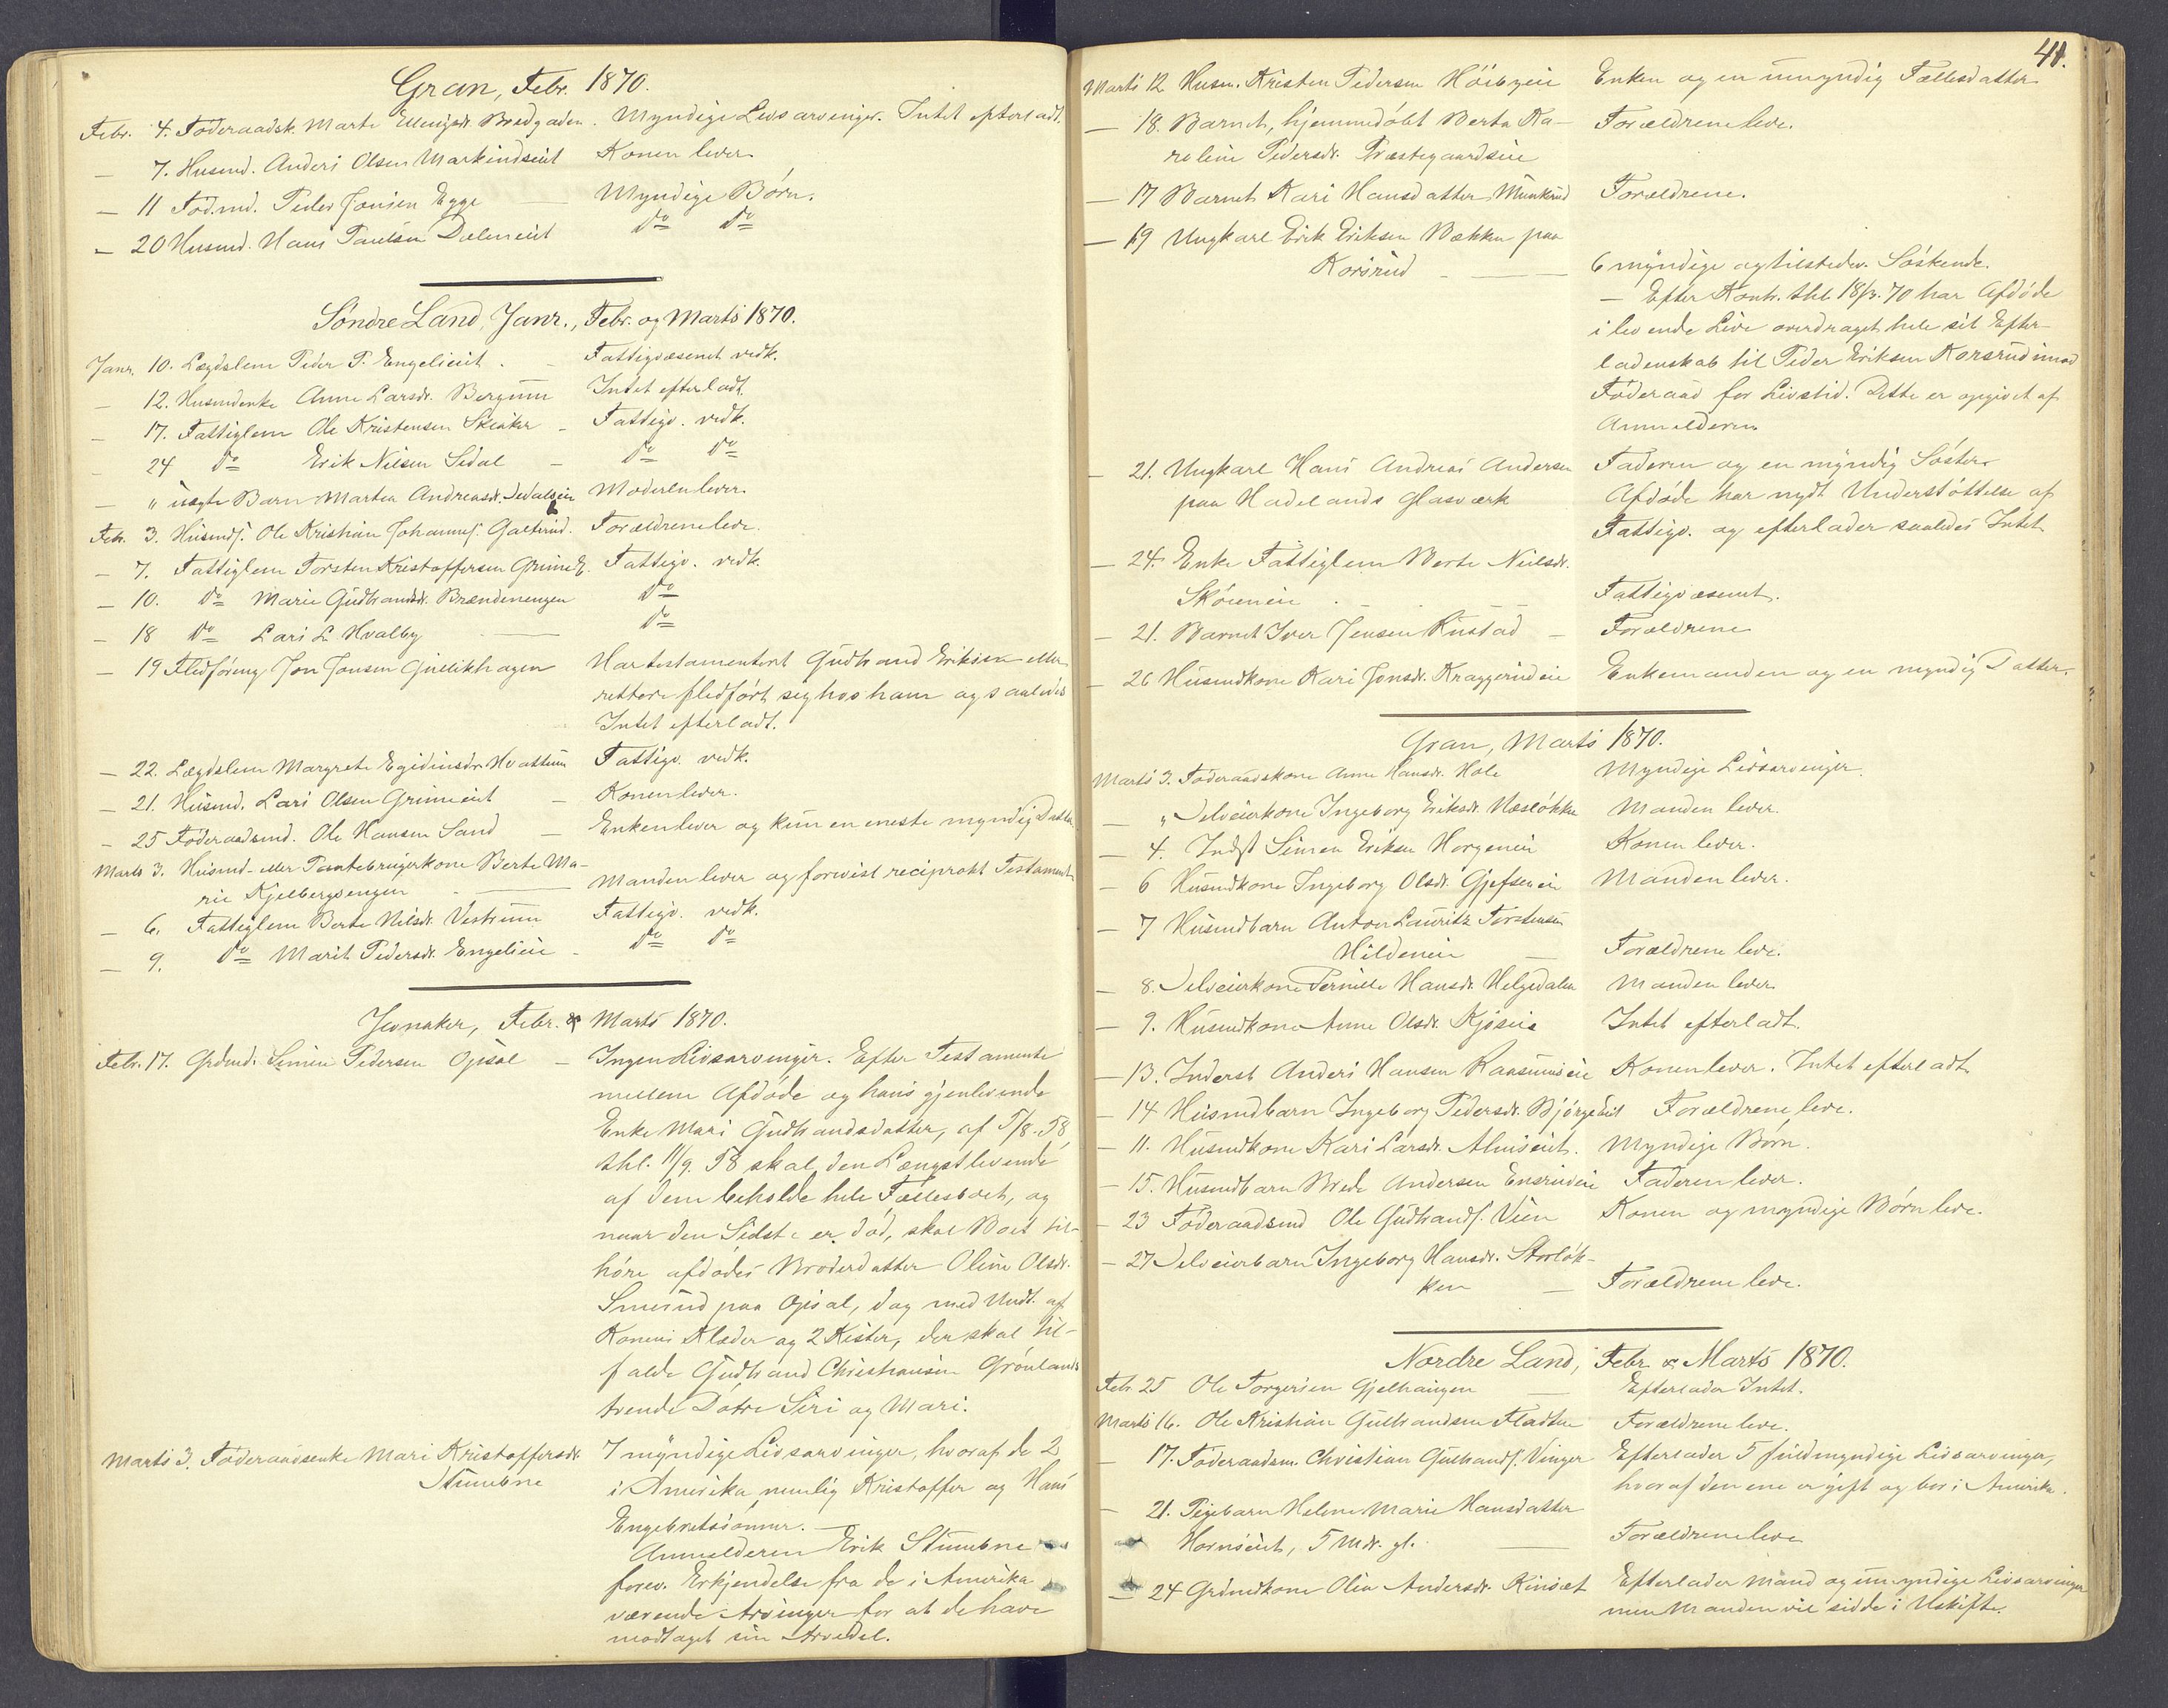 Gran, Febr. 1870.
Febr. 4. Föderaadsk. Marte Ellingsdr. Bredgaden. Myndige Livsarvinger. Intet efterladt.
— 7. Husmd. Anders Olsen Markindseiet Konen lever.
— 11 Föd.md. Peder Jonsen Egge — Myndige Børn.
— 20 Husmd. Hans Paulsen Daleneiet Do Do
Söndre Land, Janr., Febr. og Marts 1870.
Janr. 10. Lægdslem Peder P. Engelieiet. - Fattigvæsenet vedk.
— 12. Husmdenke Anne Larsdr. Bergum Intet efterladt.
— 17. Fattiglem Ole Kristensen Skiaker - Fattigv. vedk.
— 24 Do Erik Nilsen Lidal - Do Do
— " uægte Barn Martea Andreasdr. Moderen lever.
Febr. 3. Husmds. Ole Kristian Johannes. Galterud. Forældrene leve.
— 7. Fattiglem Torsten Kristoffersen Fattigv. vedk.
— 10. Do Marie Gudbrandsdr. Brændenengen Do
— 18 Do Lars L. Hvalby — Do
— 19 Fledföring Jon Jonsen Gullikhagen Har testamenteret Gudbrand Eriksen eller
rettere fledfört seg hos ham og saaledes
Intet efterladt.
— 22. Lægdslem Margrete Egidiusdr. Hvattum Fattigv. vedk.
— 21. Husmd. Lars Olsen Grimeiet - Konen lever.
— 25 Föderaadsmd. Ole Hansen Sand — Enken lever og kun en eneste myndig Datter
Marts 3. Husmd- eller Pantebrugerkone Berte Ma-
rie Kjelbergsengen — Manden lever og forevist reciprokt Testament
— 6. Fattiglem Berte Nilsdr. Vestrum Fattigv. vedk.
— 9. Do Marit Pedersdr. Engelieie - Do Do
Jevnaker, Febr. & Marts 1870.
Febr. 17. Grdmd. Simen Pedersen Opsal — Ingen Livsarvinger. Efter Testamente
mellem Afdöde og hans gjenlevende
Enke Mari Gudbrandsdatter, af 5/8. 58,
thl. 11/9. 58 skal den Længstlevende
af dem beholde hele Fællesboet, og
naar den Sidste er död, skal Boet til-
höre afdödes Broderdatter Oline Olsdr.
Smerud paa Opsal, dog med Undt. af
Konens Klæder og 2 Kister, der skal til-
falde Gudbrand Christiansen Grönlands
tvende Dötre Siri og Mari.
Marts 3. Föderaadsenke Mari Kristoffersdr. 7 myndige Livsarvinger, hvoraf de 2
Stuuebne i Amerika nemlig Kristoffer og Hans
Engebretssönner. —
Anmelderen Erik Stuuebne
forev. Erkjendelse fra de i Amerika
værende Arvinger for at de have
modtaget sin Arvedel.
41.
Marts 12 Husm. Kristen Pedersen Höibyeie Enken og en umyndig Fællesdatter
— 18. Barnet, hjemmedöbt Berta Ka- Forældrene leve.
roline Pedersdr. Præstegaardseie
— 17 Barnet Kari Hansdatter Munkerud Forældrene.
— 19 Ungkarl Erik Eriksen Bækken paa
Korsrud — 6 myndige og tilstedev. Söskende.
— Efter Kontr. thl. 18/3. 70 har Afdöde
i levende Live overdraget hele sit Efter-
ladenskab til Peder Eriksen Korsrud imod
Föderaad for Livstid. Dette er opgivet af
Anmelderen
— 21. Ungkarl Hans Andreas Andersen Faderen og en myndig Söster.
paa Hadelands Glasværk Afdöde har nydt Understöttelse af
Fattigv. og efterlader saaledes Intet
— 24. Enke Fattiglem Berte Nielsdr.
Fattigvæsenet.
— 21. Barnet Iver Jensen Rustad — Forældrene
— 26 Husmdkone Kari Jonsdr. Kraggerudeie Enkemanden og en myndig Datter.
Gran, Marts 1870.
Marts 3. Föderaadskone Anne Hansdr. Hole Myndige Livsarvinger.
— " Selveierkone Ingeborg Eriksdr. Næslökken Manden lever.
— 4. Indst Simen Eriksen Horgeneie Konen lever.
— 6 Husmdkone Ingeborg Olsdr. Gjefseneie Manden lever.
— 7 Husmdbarn Anton Lauritz Torstensen
Hildeneie — Forældrene leve.
— 8. Selveierkone Pernille Hansdr. Helgedalen Manden lever
— 9. Husmdkone Anne Olsdr. Kjöseie Intet efterladt.
— 13. Inderst Anders Hansen Raasumseie Konen lever. Intet efterladt
— 14 Husmdbarn Ingeborg Pedersdr. Björgeeiet Forældrene leve.
— 11. Husmdkone Kari Larsdr. Almseiet. Myndige Börn.
— 15. Husmdbarn Brede Andersen Ensrudeie Faderen lever.
— 23 Föderaadsmd Ole Gudbrands. Vien Konen og myndige Börn leve.
— 27 Selveierbarn Ingeborg Hansdr. Storlök-
ken — Forældrene leve.
Nordre Land, Febr. & Marts 1870.
Febr. 25 Ole Torgersen Gjelhaugen — Efterlader Intet.
Marts 16. Ole Kristian Gulbrandsen Fladhe Forældrene leve.
— 17. Föderaadsm. Christian Gulbrands. Vinger Efterlader 5 fuldmyndige Livsarvinger,
hvoraf den ene er gift og bor i Amerika.
— 21. Pigebarn Helene Marie Hansdatter
Hornseiet, 5 Mdr. gl. — Forældrene leve
— 24 Grdmdkone Olia Andersdr. Rinsæt Efterlader Mand og umyndige Livsarvinger
men Manden vil sidde i Uskifte.